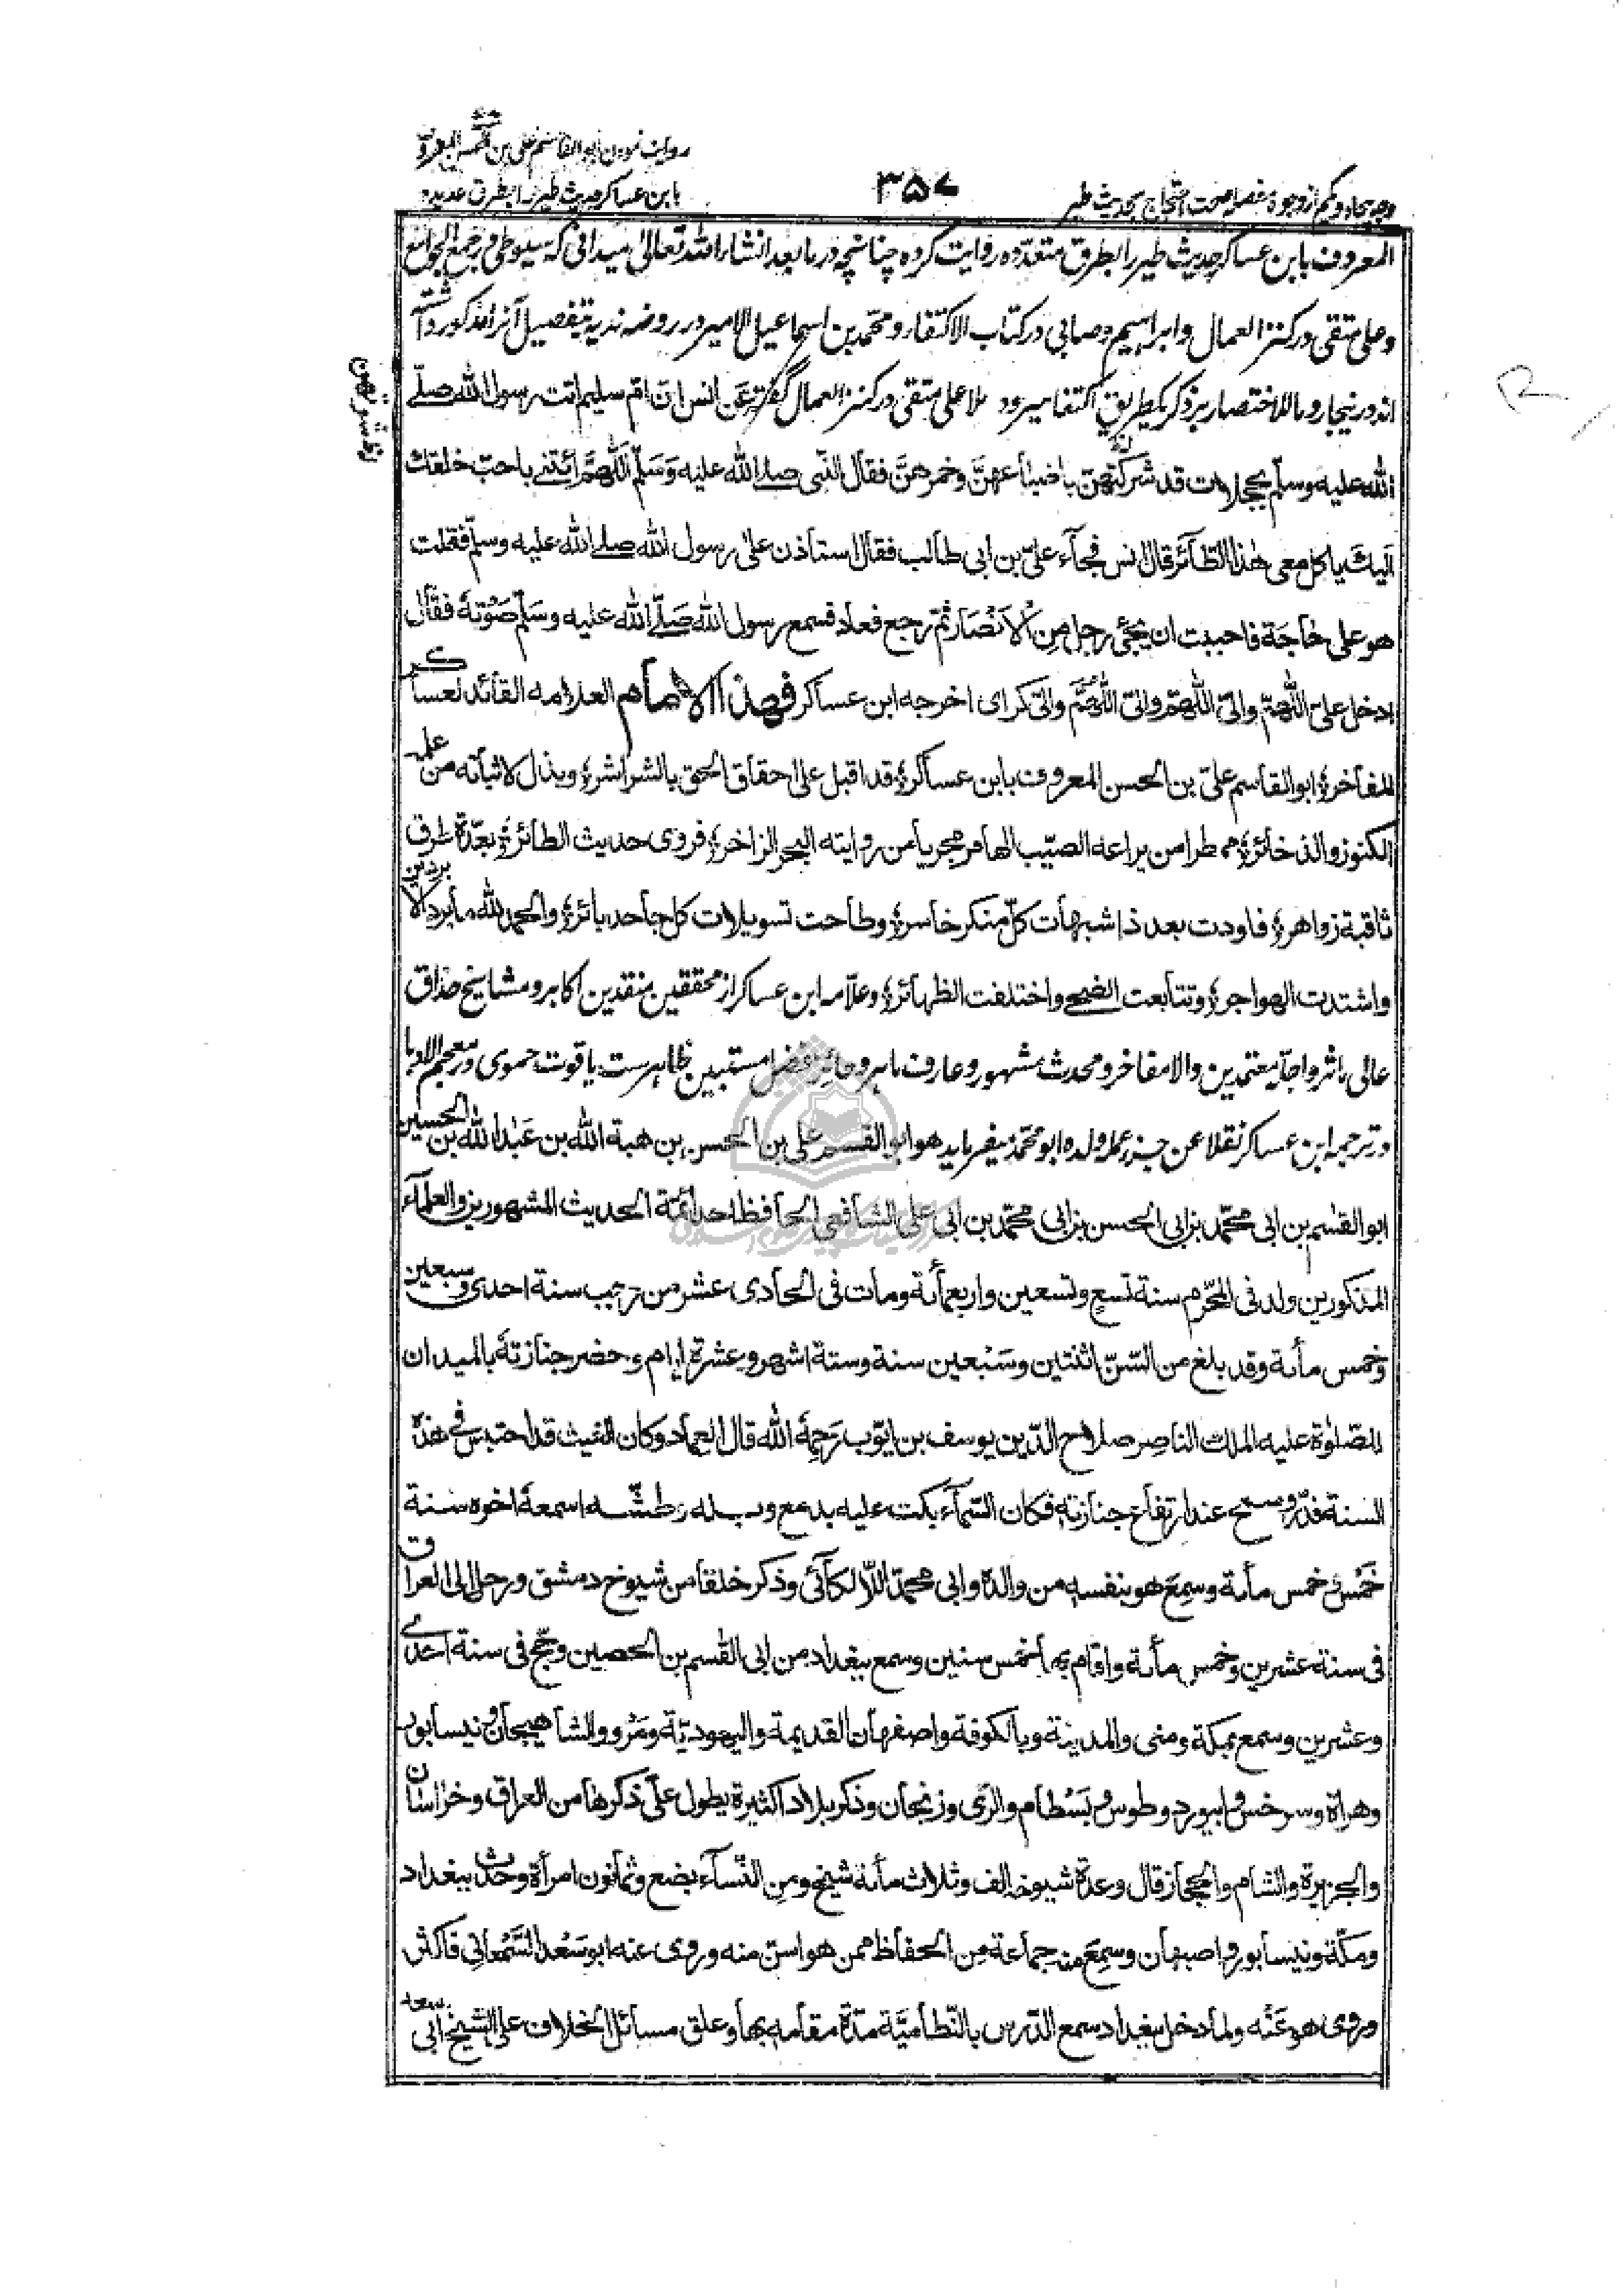 روایت نمودن ابو القاسم علی بن الحسن المعروف
بابن عساکر حدیث طیر را بطرق عدیده
۳۵۷
وجه پنجاه و یکم از وجوه مفصله صحت احتجاج بحدیث طیر
المعروف بابن عساکر حدیث طیر را بطرق متعدّده روایت کرده چنانچه در مابعد انشاء الله تعالی میدانی که سیوطی در جمع الجوامع
و علی متقی در کنز العمال و ابراهیم وصابی در کتاب الاکتفاء و محمد بن اسماعیل الامیر در روضه ندیه بتفصیل آنرا مذکور داشته
اند در نیجا روما للاختصار بر ذکر یکطریق اکتفا میرود ملا علی متقی در کنز العمال گفته عن انس ان ام سلیم اتت رسول الله صلّے
الله علیه وسلّم بحجلات قد شرکتهن باضباعهنّ وخمرهنّ فقال النّبی صلے الله علیه وَسَلّم اللّهمَّ ائتنے باحبّ خلقك
الیكَ یاکل معی هٰذا الطّآئر قال انس فجآء علیّ بن ابی طالب فقال استأذن علیٰ رسول الله صلے الله علیه وسلّم فقلت
هو علی حاجَة فاحببت ان یجیٔ رجل مِن الاَنصَار ثمّ رجع فعاد فسمع رسول الله صَلّے الله علیه وسَلّم صَوْتَهٗ فقاَل
ادخل علیّ اللّهمّ والیّ اللّهمّ والیّ اللّهُمَّ والیّ کرای اخرجه ابن عساکر فهٰذا الاِمام العلامه القائد لعساکر
المفاخر؛ ابو القاسم علیّ بن الحسن المعروف بابن عساکر؛ قد اقبل علیٰ احقاق الحق بالشراشر؛ وبذل لاثباته من علمه
الکنوز والذخائر؛ ممطرا من یراعه الصیّب الهامر مجریا من روایته البحر الزاخر؛ فروی حدیث الطائر؛ بعدّة طرق
ثاقبة زواهر؛ فاودت بعد ذا شبهات کلّ منکر خاسر؛ وطاحت تسویلات کل جاحد بائر؛ والحمد لله ما برد الابردین
واشتدت الهواجر؛ وتتابعت الضحے واختلفت الظهائر؛ وعلّامه ابن عساکر از محققین منقدین اکابر و مشایخ حذاق
عالی ماثر و اجلّه معتمدین والا مفاخر و محدث مشهور و عارف ماهر و حائز فضل مستبین ظاهرست یاقوت حموی در معجم الادبا
در ترجمه ابن عساکر نقلا عن جزء عمله ولده ابو محمد میفرماید هو ابو القسم علی بن الحسن بن هبة الله بن عبد الله بن الحسین
ابو القسم بن ابی محمّد بن ابی الحسن بن ابی محمّد بن ابی علی الشافعی الحافظ احد ائمة الحدیث المشهورین والعلمآء
المذکورین ولد فی المحرّم سنة تسع وتسعین واربعمأئة ومات فی الحادی عشر من رجب سنة احدی وسبعین
وخمس مأئة وقد بلغ من السّنّ اثنتین وسَبْعین سنة وستة اشهر وعشرة ایام وحضر جنازتهٗ بالمیدان
للصّلوٰة علیه الملك الناصر صلاح الدّین یوسف بن ایّوب رَحِمَهُ الله قال العماد وکان الغیث قد احتبس فی هٰذه
السنة فدرّ وسح عند ارتفاع جنازته فکان السّمآء بکت علیه بدمع وبله وطشّه اسمعهٗ اخوه سنة
خَمْسٍ وخمس مأئة وسمِعَ هو بنفسه من والده وابی محمّد اللالکآئی وذکر خلقا من شیوخ دمشق ورحل الی العراق
فی سنة عشرین وخمس مأئة واقام بها خمس سنین وسمع ببغداد من ابی القسم بن الحصین وحجّ فی سنة احدے
وعشرین وسمع بمکة ومنی والمدینة وبالکوفة واصفهان القدیمة والیهودیّة ومَرْو والشاهیجان ونیسابور
وهراة وسرخس وابیورد وطوس وبَسْطام والرّی وزنجان وذکر بلادا کثیرة یطول علیّ ذکرها من العراق وخراسان
والجزیرة والشام والحجاز قال وعدة شیوخه الف وثلاث مأئة شیخ ومِن النّسآء بضع وثمانون امرأة وحدّث ببغداد
ومکّة ونیسابور واصبهان وسمِعَ منه جماعة مِن الحفاظ ممن هو اسنّ منه وروی عنه ابو سَعْد السَّمْعانی فاکثر
وروی هو عَنْه ولما دخل بغداد سمع الدّرس بالنّظامیَّة مدّة مقامه بها وعلق مسائل الخلاف علی الشیخ ابی سعد